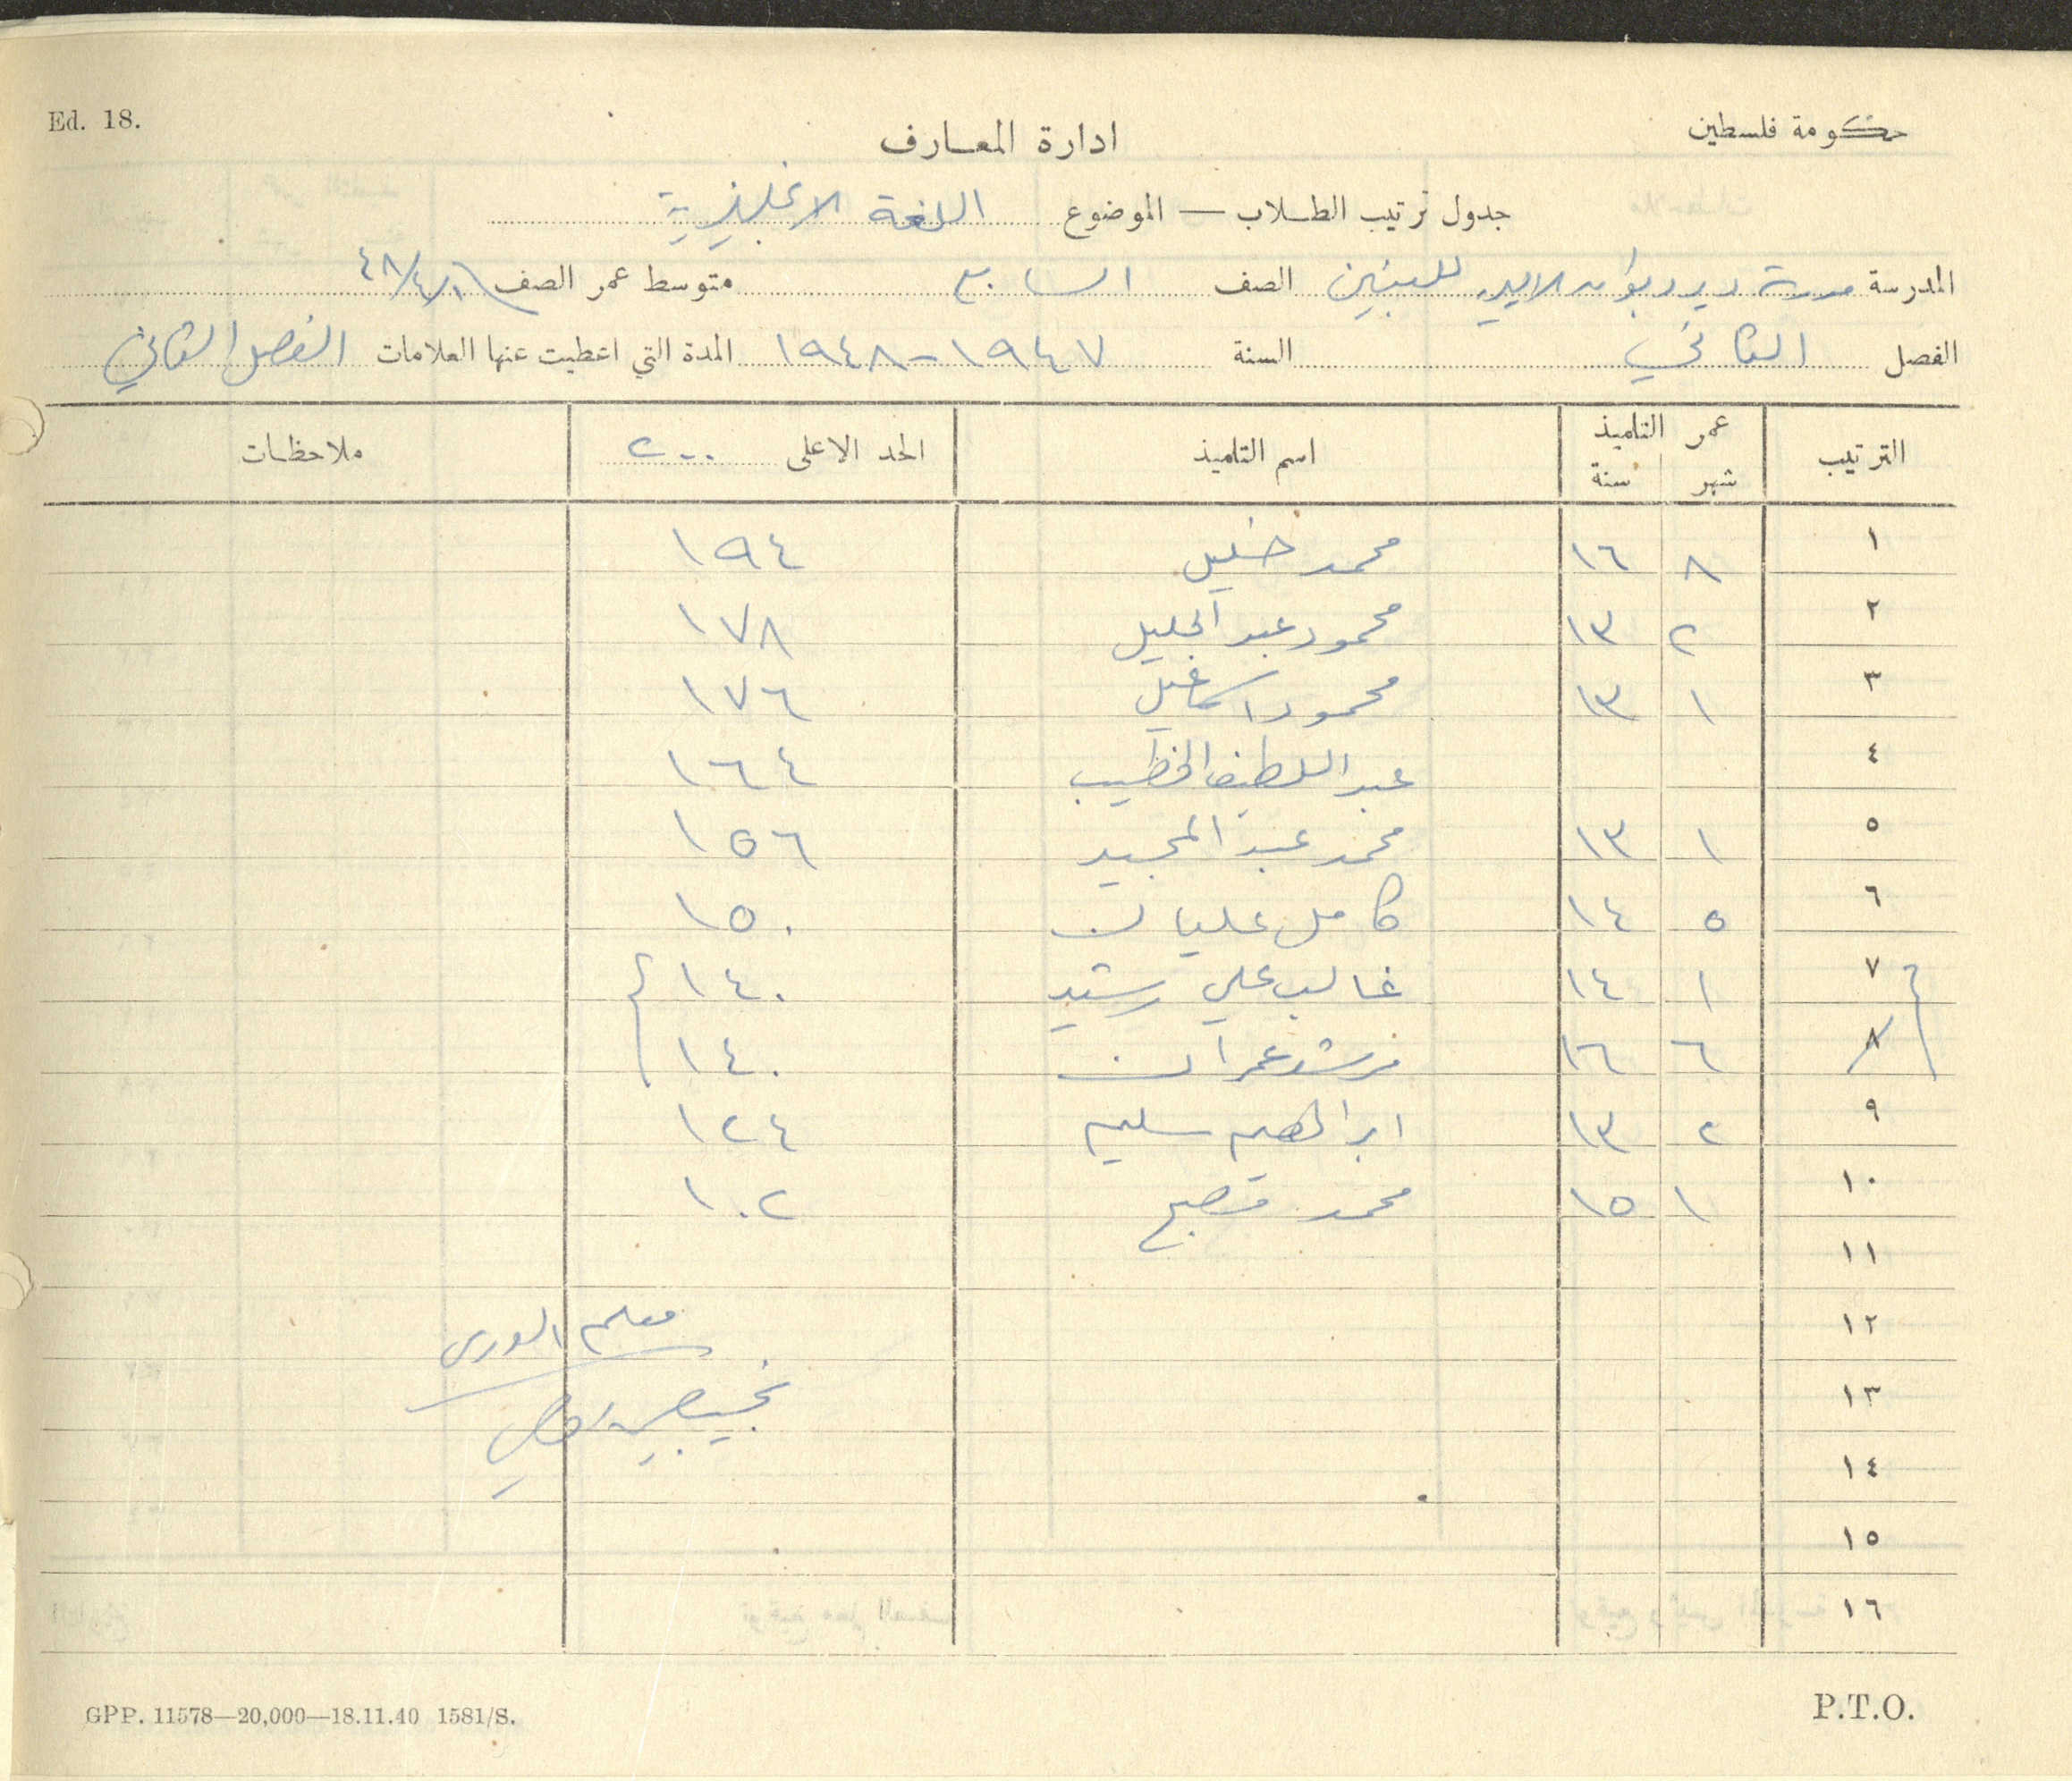 Ed. 18.
حكومة فلسطين
ادارة المعارف
جدول ترتيب الطلاب — الموضوع اللغة الانجليزية
المدرسة مدرسة دير للبنين الصف السابع متوسط عمر الصف
الفصل الثاني السنة ١٩٤٧-١٩٤٨ المدة التي اعطيت عنها العلامات الفصل الثاني
الترتيب عمر التلميذ شهر سنة اسم التلميذ الحد الاعلى ٢٠٠ ملاحظات
١ ٨ ١٦ محمد خليل ١٩٤
٢ ٢ ١٣ محمود عبد الجليل ١٧٨
٣ ١ ١٣ محمود اسماعيل ١٧٦
٤ عبد اللطيف الخطيب ١٦٤
٥ ١ ١٣ محمد عبد المجيد ١٥٦
٦ ٥ ١٤ كامل عليان ١٥٠
٧ ١ ١٤ غالب علي رشيد ١٤٠
٨ ٦ ١٦ مرشد عمران ١٤٠
٩ ٢ ١٣ ابراهيم سليم ١٢٤
١٠ ١ ١٥ محمد ١٠٢
١١
١٢
معلم
١٣
نجيب
١٤
١٥
١٦
GPP. 11578—20,000—18.11.40 1581/S.
P.T.O.